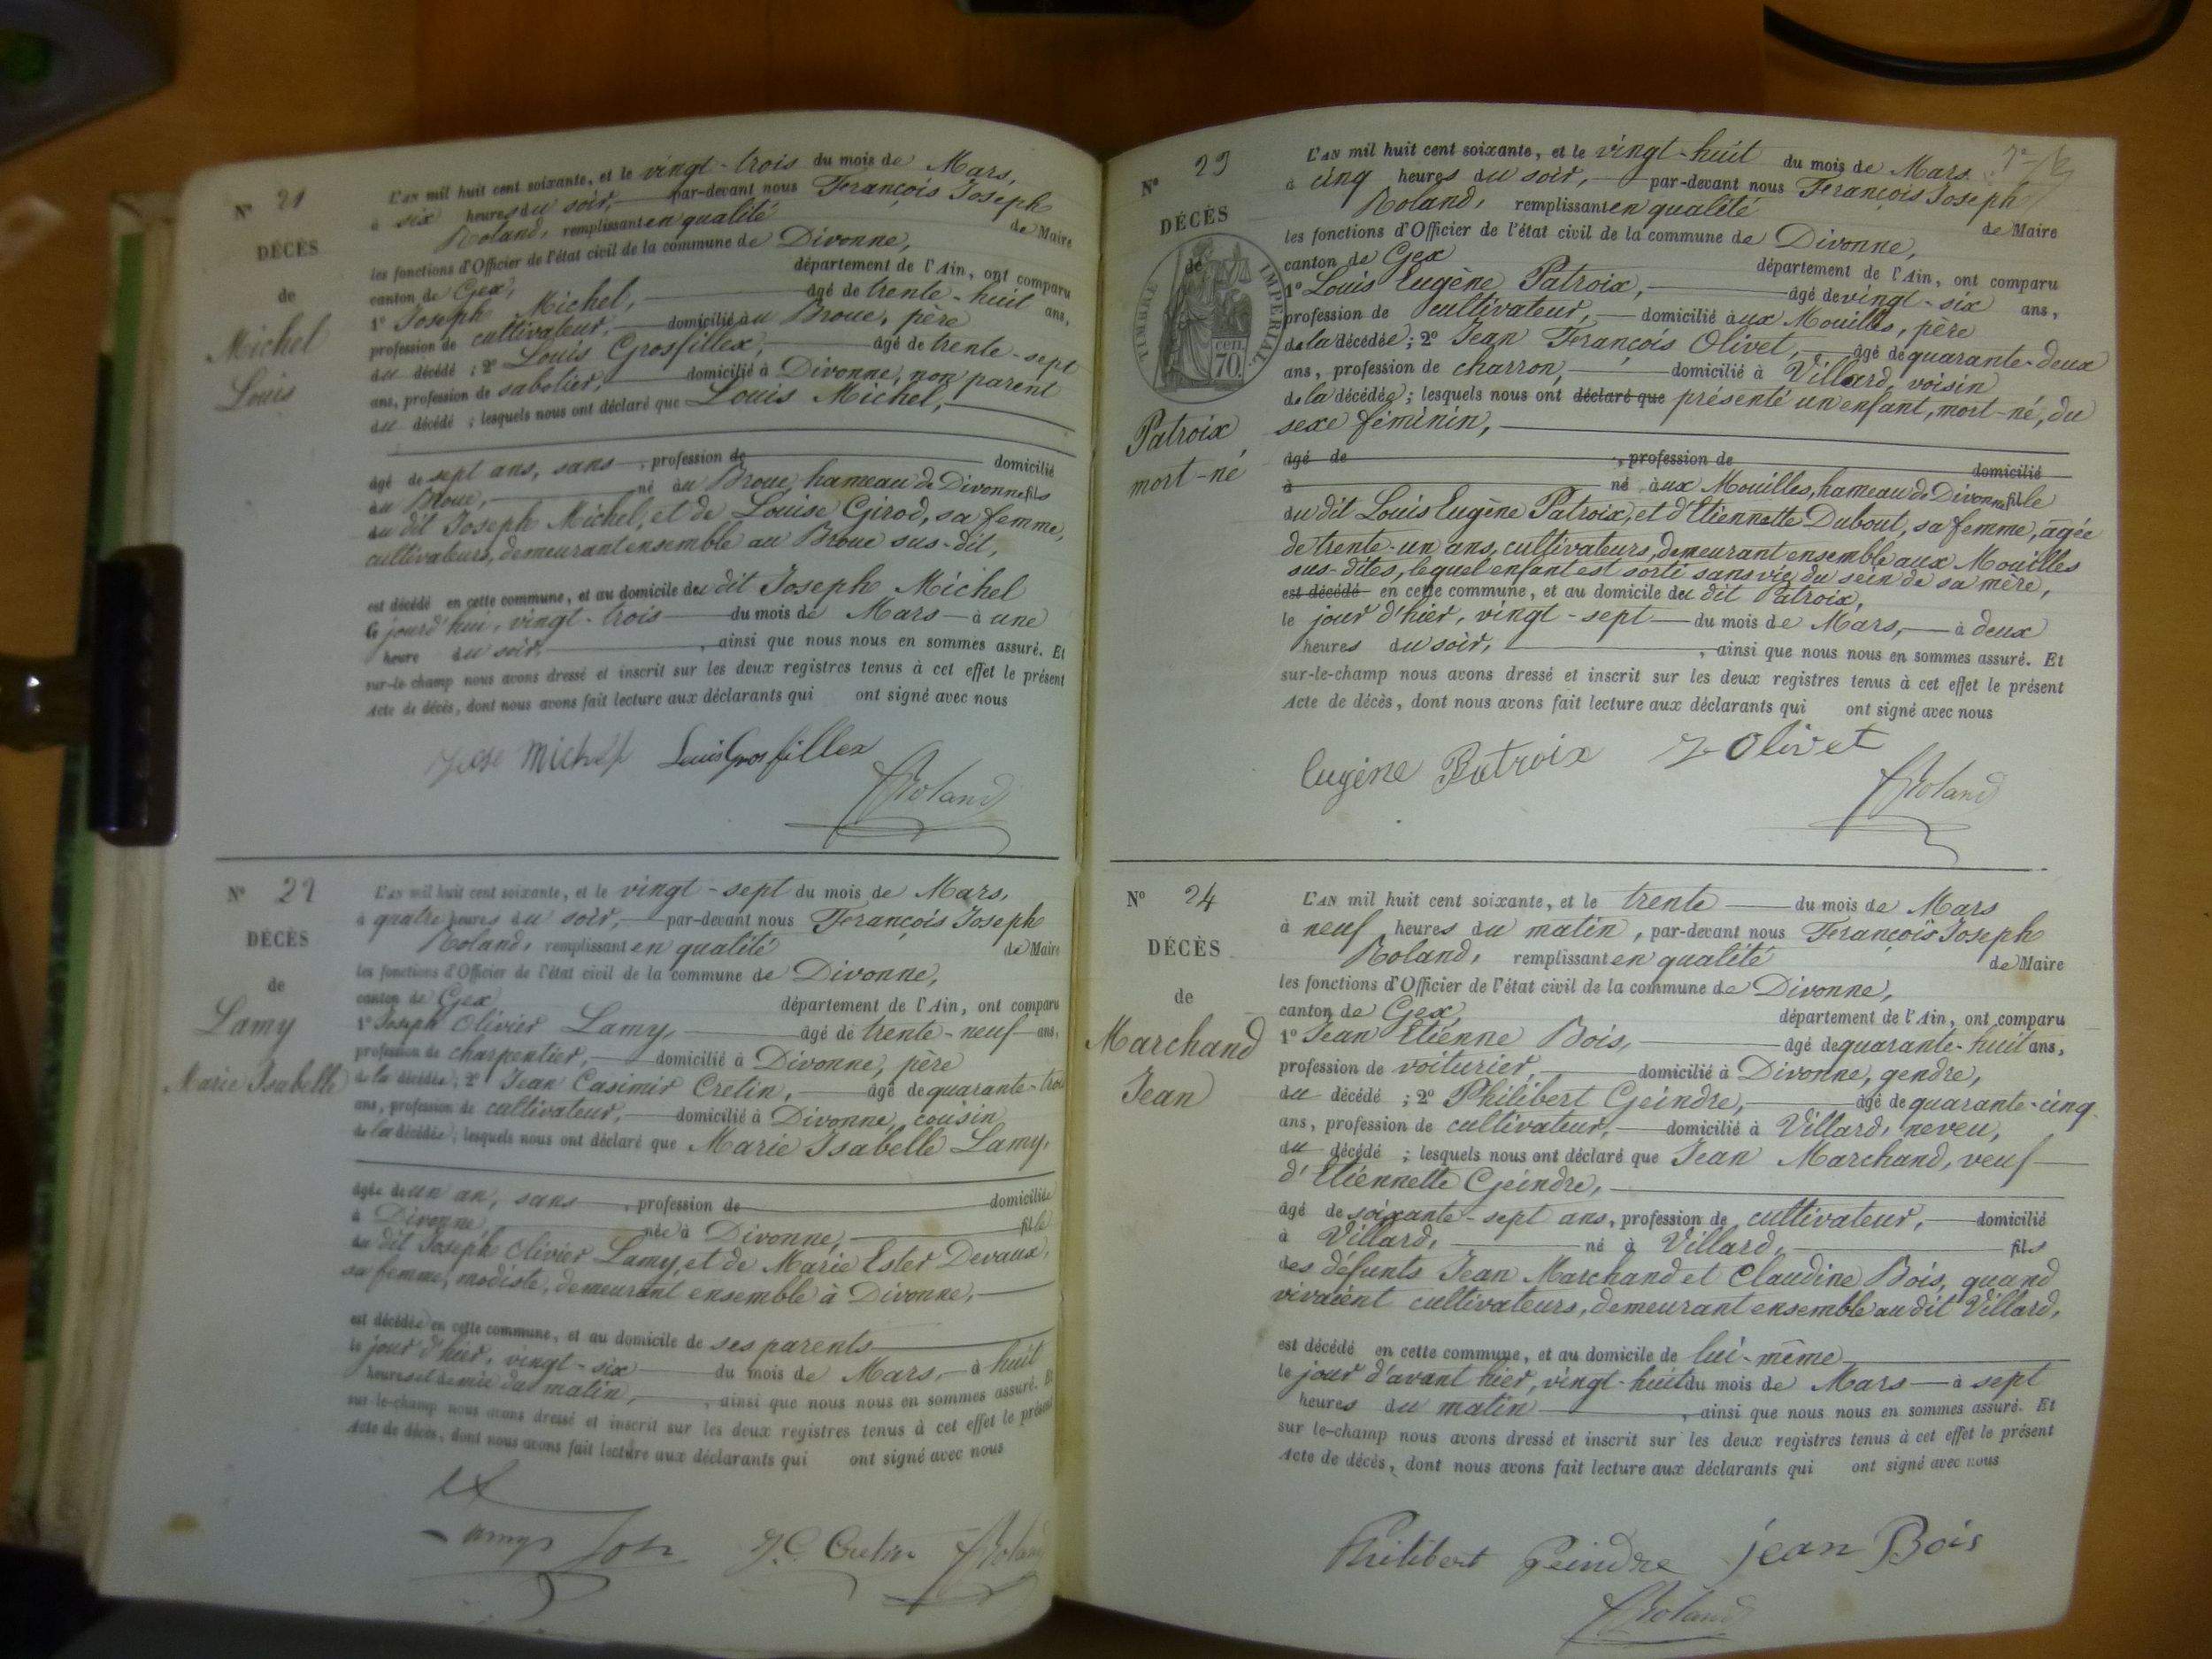 N° 21
DÉCÈS
de
Michel
Louis
L'AN mil huit cent soixante, et le vingt-trois du mois de Mars,
à six heures du soir, par-devant nous François Joseph
Roland, remplissant en qualité de Maire
les fonctions d'Officier de l'état civil de la commune de Divonne,
canton de Gex, département de l'Ain, ont comparu
1° Joseph Michel, âgé de trente-huit ans,
profession de cultivateur, domicilié au Broue, père
du décédé ; 2° Louis Grosfillex, âgé de trente-sept
ans, profession de sabotier, domicilié à Divonne, non parent
du décédé ; lesquels nous ont déclaré que Louis Michel,
âgé de sept ans, sans , profession de domicilié
au Broue, né au Broue, hameau de Divonne fils
du dit Joseph Michel, et de Louise Girod, sa femme,
cultivateurs, demeurant ensemble au Broue sus-dit,
est décédé en cette commune, et au domicile du dit Joseph Michel
le jourd'hui, vingt-trois du mois de Mars à une
heure du soir, , ainsi que nous nous en sommes assuré. Et
sur-le-champ nous avons dressé et inscrit sur les deux registres tenus à cet effet le présent
Acte de décès, dont nous avons fait lecture aux déclarants qui ont signé avec nous
Michel Louis Grosfillex
Roland
N° 22
DÉCÈS
de
Lamy
Marie Isabelle
L'AN mil huit cent soixante, et le vingt-sept du mois de Mars,
à quatre heures du soir, par-devant nous François Joseph
Roland, remplissant en qualité de Maire
les fonctions d'Officier de l'état civil de la commune de Divonne,
canton de Gex département de l'Ain, ont comparu
1° Joseph Olivier Lamy, âgé de trente-neuf ans,
profession de charpentier, domicilié à Divonne, père
de la décédée ; 2° Jean Casimir Cretin, âgé de quarante-trois
ans, profession de cultivateur, domicilié à Divonne, cousin
de la décédée ; lesquels nous ont déclaré que Marie Isabelle Lamy,
âgée d'un an, sans , profession de domiciliée
à Divonne, née à Divonne, fille
du dit Joseph Olivier Lamy, et de Marie Ester Devaux,
sa femme, modiste, demeurant ensemble à Divonne,
est décédée en cette commune, et au domicile de ses parents
le jour d'hier, vingt-six du mois de Mars, à huit
heures et demie du matin, , ainsi que nous nous en sommes assuré. Et
sur-le-champ nous avons dressé et inscrit sur les deux registres tenus à cet effet le présent
Acte de décès, dont nous avons fait lecture aux déclarants qui ont signé avec nous
Lamy Jos J. C. Cretin Roland
N° 23
DÉCÈS
de
TIMBRE IMPÉRIAL
70 cen.
Patroix
mort-né
L'AN mil huit cent soixante, et le vingt-huit du mois de Mars
à cinq heures du soir, par-devant nous François Joseph
Roland, remplissant en qualité de Maire
les fonctions d'Officier de l'état civil de la commune de Divonne,
canton de Gex département de l'Ain, ont comparu
1° Louis Eugène Patroix, âgé de vingt-six ans,
profession de cultivateur, domicilié aux Mouilles, père
de la décédée ; 2° Jean François Olivet, âgé de quarante-deux
ans, profession de charron, domicilié à Villard, voisin
de la décédée ; lesquels nous ont déclaré que présenté un enfant, mort-né, du
sexe féminin,
âgé de , profession de domicilié
à né aux Mouilles, hameau de Divonne fille
du dit Louis Eugène Patroix, et d'Etiennette Dubout, sa femme, âgée
de trente-un ans, cultivateurs, demeurant ensemble aux Mouilles
sus-dites, lequel enfant est sorti sans vie du sein de sa mère,
est décédé en cette commune, et au domicile du dit Patroix,
le jour d'hier, vingt-sept du mois de Mars, à deux
heures du soir, , ainsi que nous nous en sommes assuré. Et
sur-le-champ nous avons dressé et inscrit sur les deux registres tenus à cet effet le présent
Acte de décès, dont nous avons fait lecture aux déclarants qui ont signé avec nous
Eugène Patroix Olivet
Roland
N° 24
DÉCÈS
de
Marchand
Jean
L'AN mil huit cent soixante, et le trente du mois de Mars
à neuf heures du matin, par-devant nous François Joseph
Roland, remplissant en qualité de Maire
les fonctions d'Officier de l'état civil de la commune de Divonne,
canton de Gex, département de l'Ain, ont comparu
1° Jean Etienne Bois, âgé de quarante-huit ans,
profession de voiturier, domicilié à Divonne, gendre,
du décédé ; 2° Philibert Geindre, âgé de quarante-cinq
ans, profession de cultivateur, domicilié à Villard, neveu,
du décédé ; lesquels nous ont déclaré que Jean Marchand, veuf
d'Etiennette Geindre,
âgé de soixante-sept ans, profession de cultivateur, domicilié
à Villard, né à Villard, fils
des défunts Jean Marchand et Claudine Bois, quand
vivaient cultivateurs, demeurant ensemble au dit Villard,
est décédé en cette commune, et au domicile de lui-même
le jour d'avant hier, vingt-huit du mois de Mars à sept
heures du matin , ainsi que nous nous en sommes assuré. Et
sur le-champ nous avons dressé et inscrit sur les deux registres tenus à cet effet le présent
Acte de décès, dont nous avons fait lecture aux déclarants qui ont signé avec nous
Philibert Geindre jean Bois
Roland